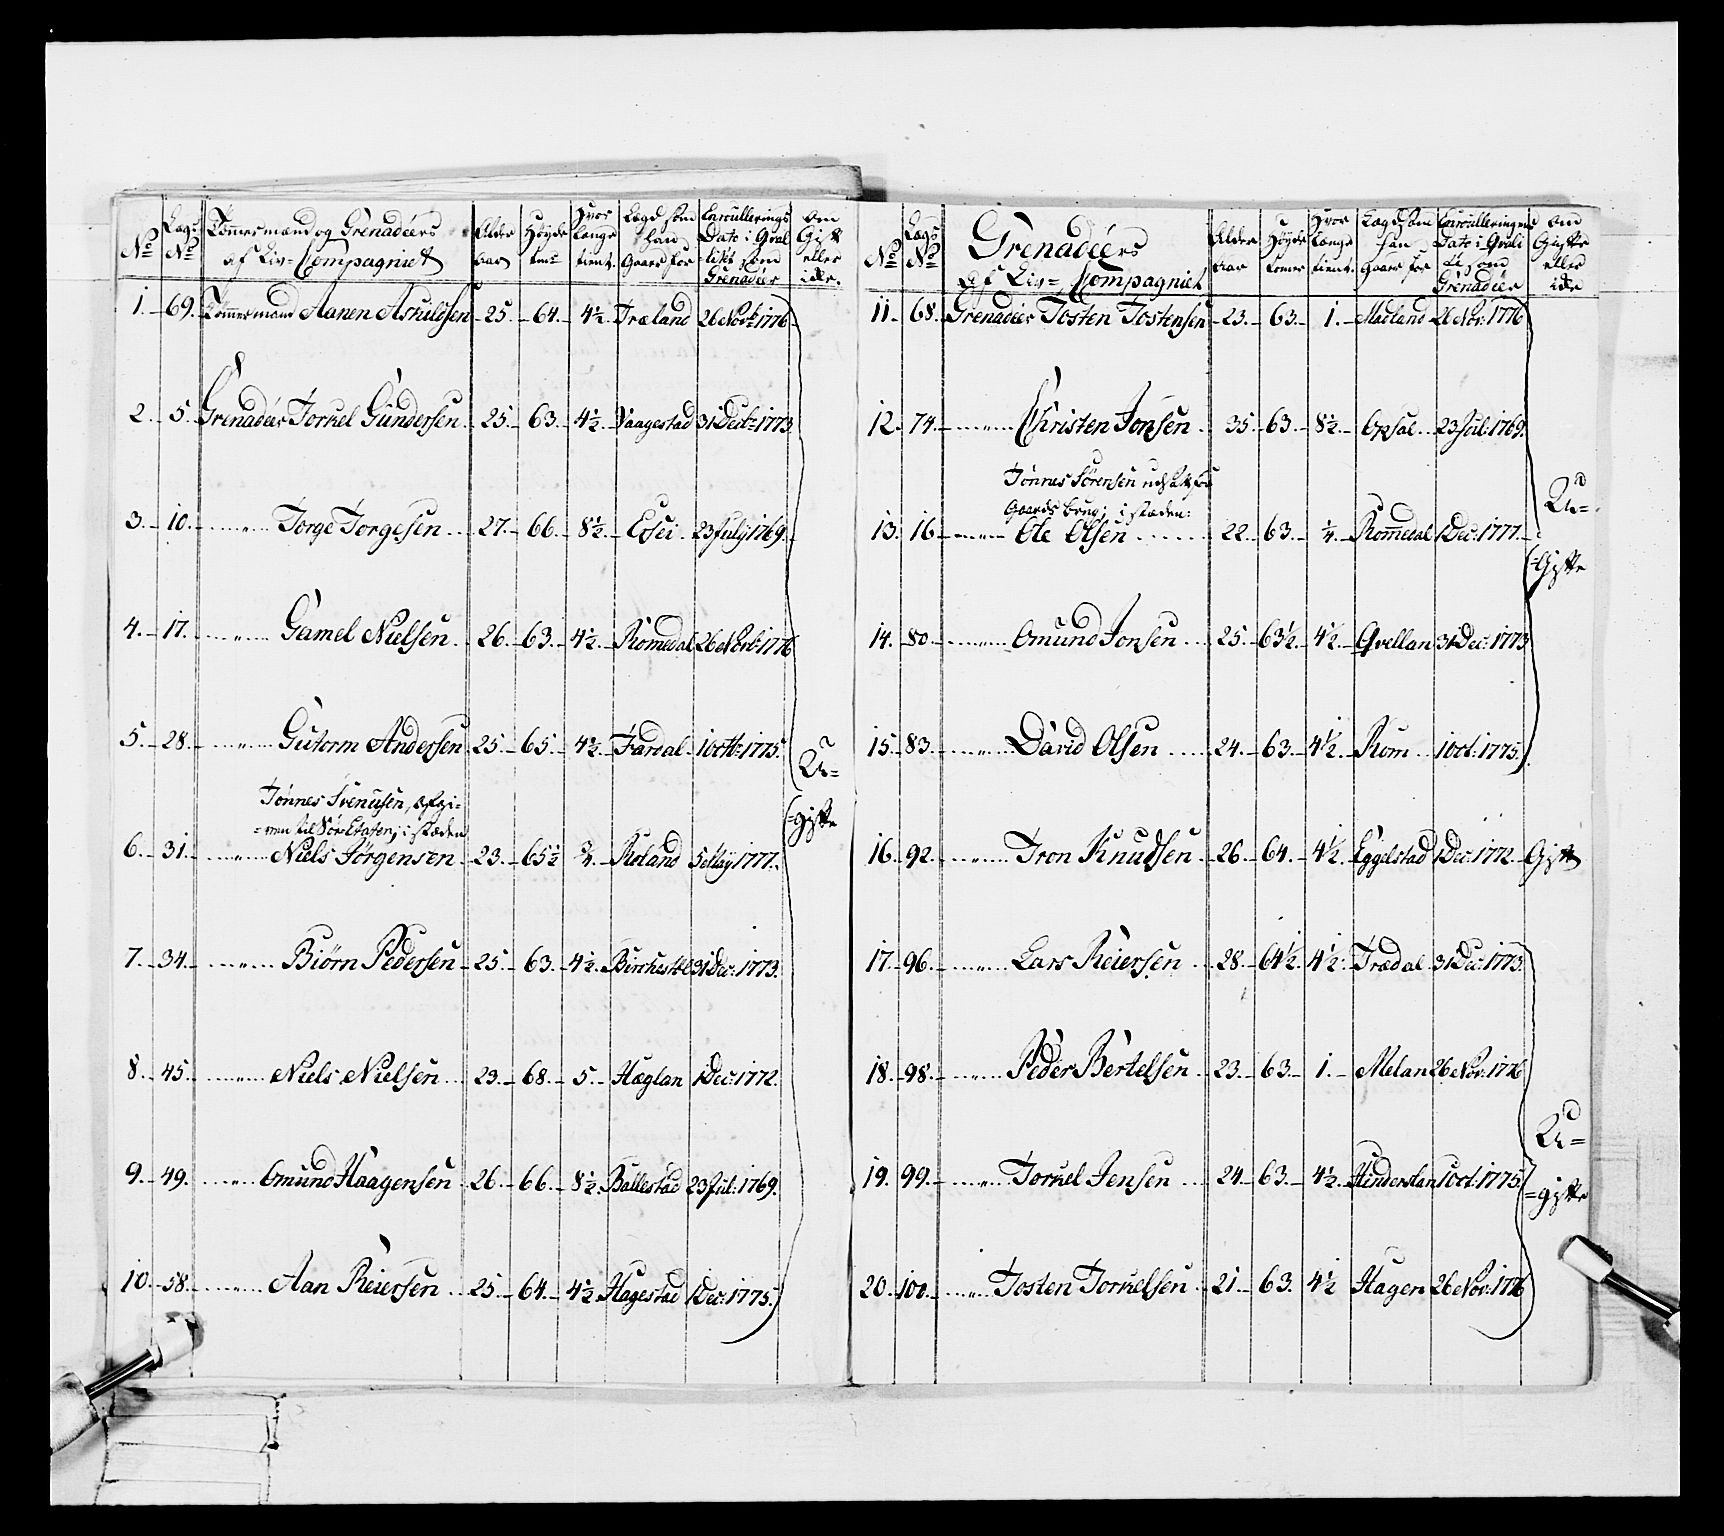 No
Lægs No
Tømmermænd og Grenadéers
af Liv= Compagniet
Alder Aar
Høyde
Hvor Længe tient
Lægd som han Gaaer for
Enroullerings Dato i Qvalitets som Grenadéer
Om Gift eller icke.
1. 69. Tømmermand Aanen Askildsen 25. 64. 4½. Træland 26 Novbr 1776
2. 5. Grenadéer Torkel Gundersen 25. 63. 4½. Vaagestad 31 Decbr 1773.
3. 10. Torge Torgesen 27. 66. 8½. 23 July 1769.
4. 17. Gamel Nielsen 26. 63. 4½. Romedal 26 Novb: 1776
5. 28. Gutorm Andersen 25. 65. 4½. Fardal 1 Octb: 1775.
U=
Tönnes Svenusen, afgi=
=ven til i stæden
=gifte
6. 31. Niels Jørgensen 23. 65½ ¾. Røeland 5 May 1777.
7. 34. Biörn Pedersen 25. 63. 4½. 31 Dec: 1773.
8. 45. Niels Nielsen 23. 68. 5. Hæglan 1 Dec: 1772.
9. 49. Omund Haagensen 26. 66. 8½. Ballestad 23 Jul: 1769.
10. 58. Aan Reiersen 25. 64. 4½. Hagestad 1 Dec: 1775.
No
Lægs No
Grenadéers
af Liv= Compagniet
Alder Aar
Høyde Tomer
Hvor Længe tient.
Lægd som han gaaer for
Enroulleringens Dato i Qvalite som Grenadéer
Om Gifte eller icke
11. 68. Grenadéer Tosten Tostensen 23. 63. 1. Madland 26 Nov: 1776
12. 74. Christen Jonsen 35. 63. 8½. Opsal 23 Jul: 1769.
Tönnes Sörensen udsadt for
Gaards brug; i stæden:
U=
13. 16. Ole Olsen 22. 63. ¼. Romedal 1 Dec: 1777.
=Gifte
14. 80. Omund Jonsen 25. 63½. 4½. Qvellan 31 Dec: 1773
15. 83. David Olsen 24. 63. 4½. Rom 1 Oct: 1775.
16. 92. Tron Knudsen 26. 64. 4½. Eggelstad 1 Dec: 1772. Gift
17. 96. Lars Reiersen 28. 64½. 4½. Trædal 31 Dec: 1773.
18. 98. Peder Bertelsen 23. 63. 1. Melan 26 Nov: 1776
U=
19. 99. Torkel Jensen 24. 63. 4½. Hinderslan 1 Oct: 1775
=gifte
20. 100. Tosten Torkelsen 21. 63. 4½ Hagen 26 Nov: 1776